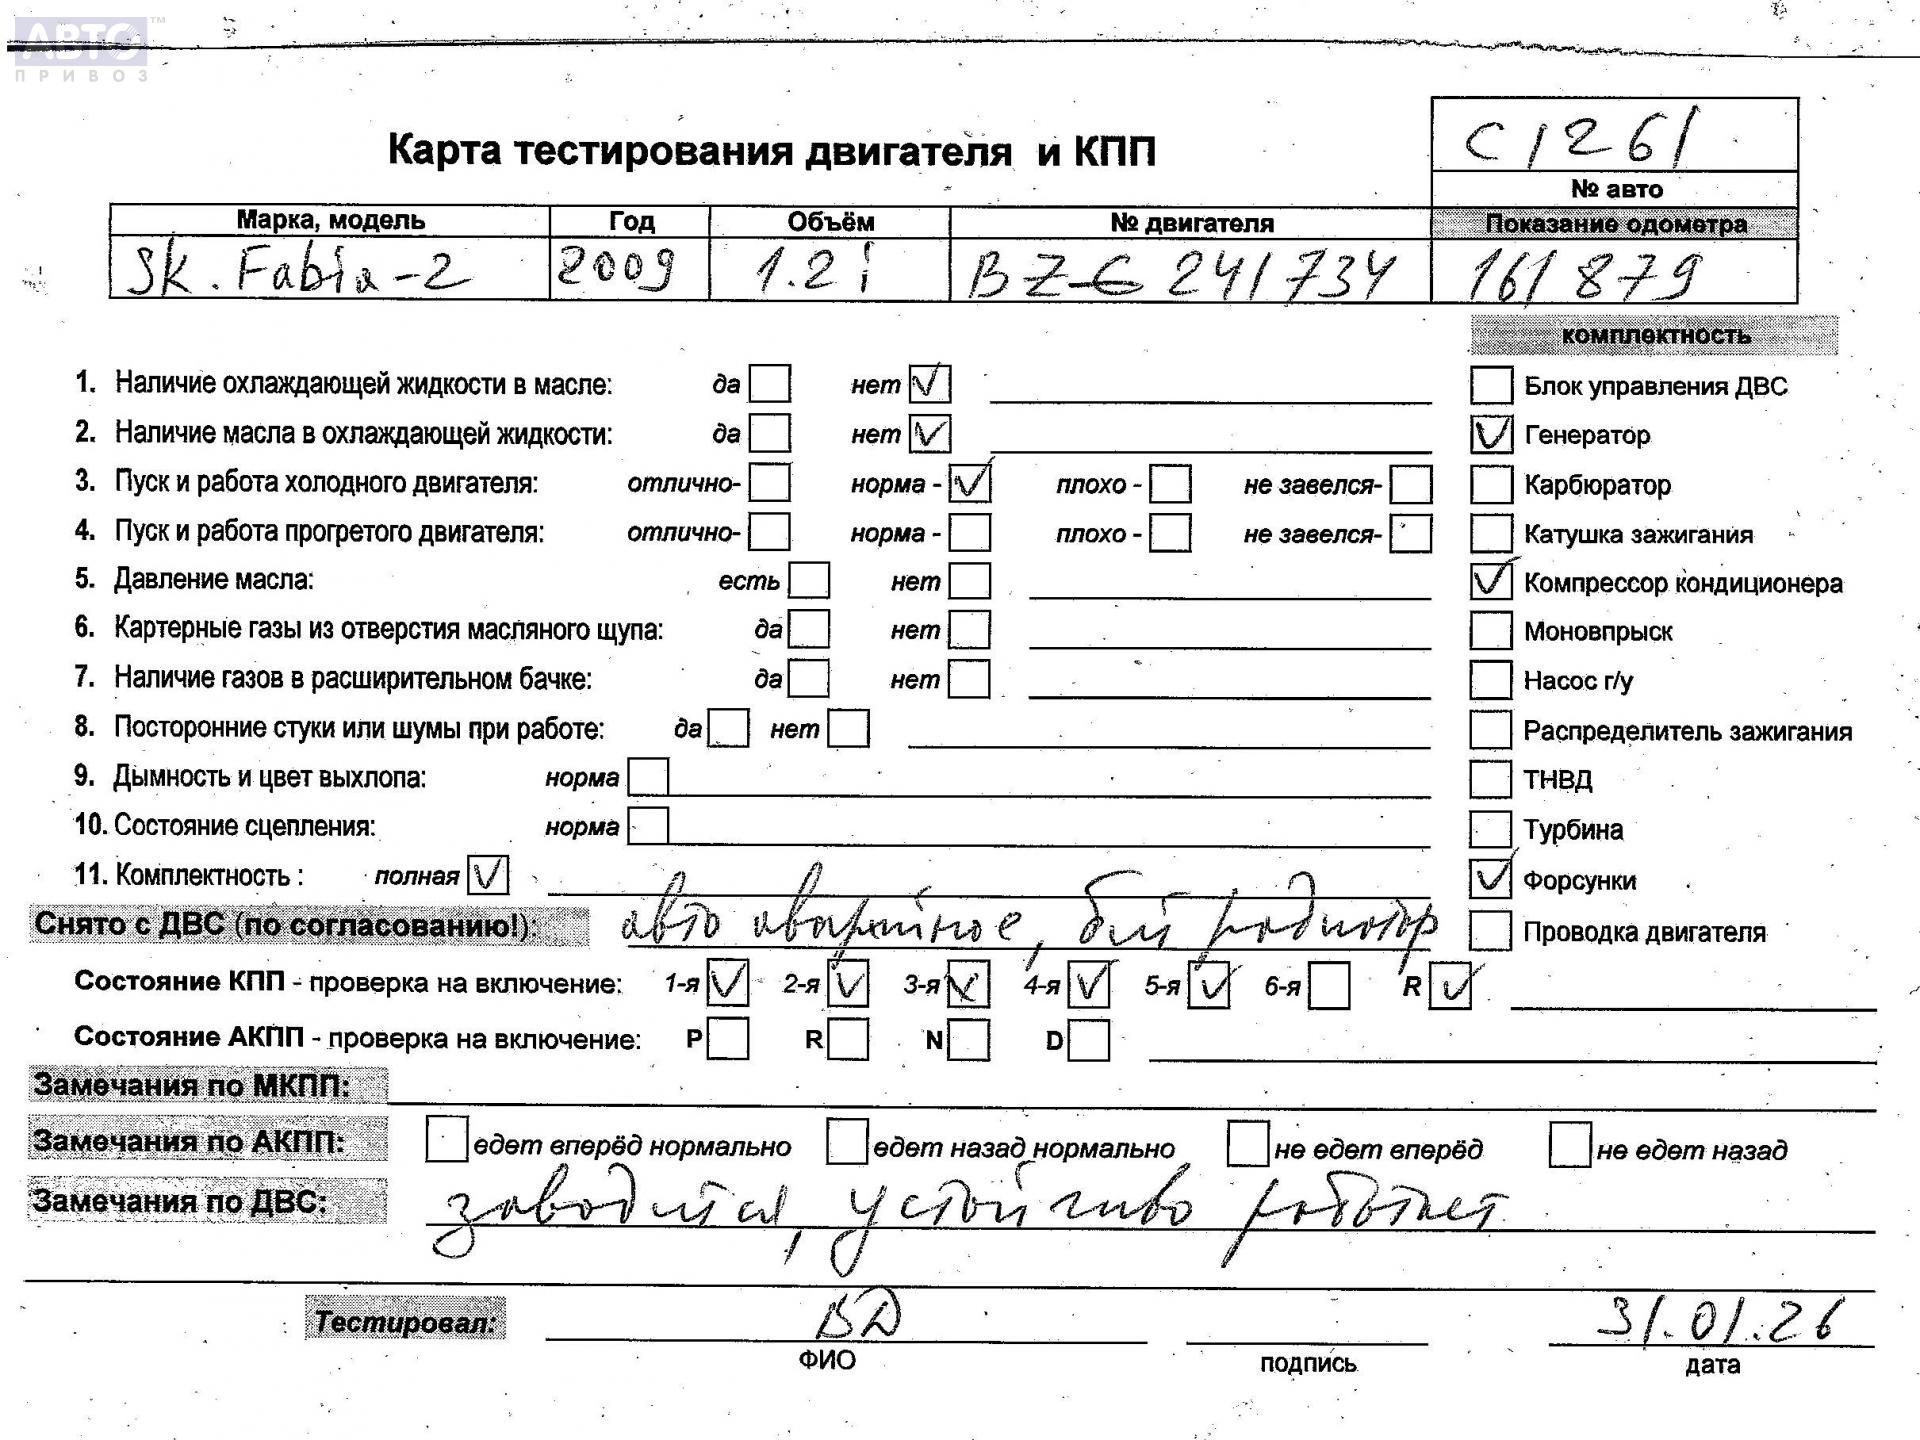 АВТО™
ПРИВОЗ
С1261
Карта тестирования двигателя и КПП
№ авто
Марка, модель Год Объём № двигателя Показание одометра
Sk. Fabia-2 2009 1.2 i BZG 241734 161 879
комплектность
1. Наличие охлаждающей жидкости в масле: да нет ✓ Блок управления ДВС
2. Наличие масла в охлаждающей жидкости: да нет ✓ ✓ Генератор
3. Пуск и работа холодного двигателя: отлично- норма - ✓ плохо - не завелся- Карбюратор
4. Пуск и работа прогретого двигателя: отлично- норма - плохо - не завелся- Катушка зажигания
5. Давление масла: есть нет ✓ Компрессор кондиционера
6. Картерные газы из отверстия масляного щупа: да нет Моновпрыск
7. Наличие газов в расширительном бачке: да нет Насос г/у
8. Посторонние стуки или шумы при работе: да нет Распределитель зажигания
9. Дымность и цвет выхлопа: норма ТНВД
10. Состояние сцепления: норма Турбина
11. Комплектность : полная ✓ ✓ Форсунки
Снято с ДВС (по согласованию!): авто аварийное, бит радиатор Проводка двигателя
Состояние КПП - проверка на включение: 1-я ✓ 2-я ✓ 3-я ✓ 4-я ✓ 5-я ✓ 6-я R ✓
Состояние АКПП - проверка на включение: P R N D
Замечания по МКПП:
Замечания по АКПП: едет вперёд нормально едет назад нормально не едет вперёд не едет назад
Замечания по ДВС: заводится, устойчиво работает
Тестировал: ВД 31.01.26
ФИО подпись дата